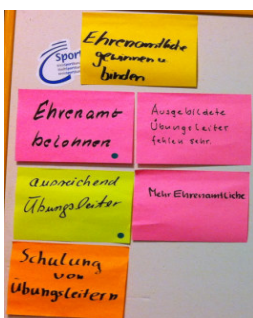 Sport
Ehrenamtliche
gewinnen u
binden
Ehrenamt
belohnen
Ausgebildete
Übungsleiter
fehlen sehr.
ausreichend
Übungsleiter
Mehr Ehrenamtliche
Schulung
von
Übungsleitern